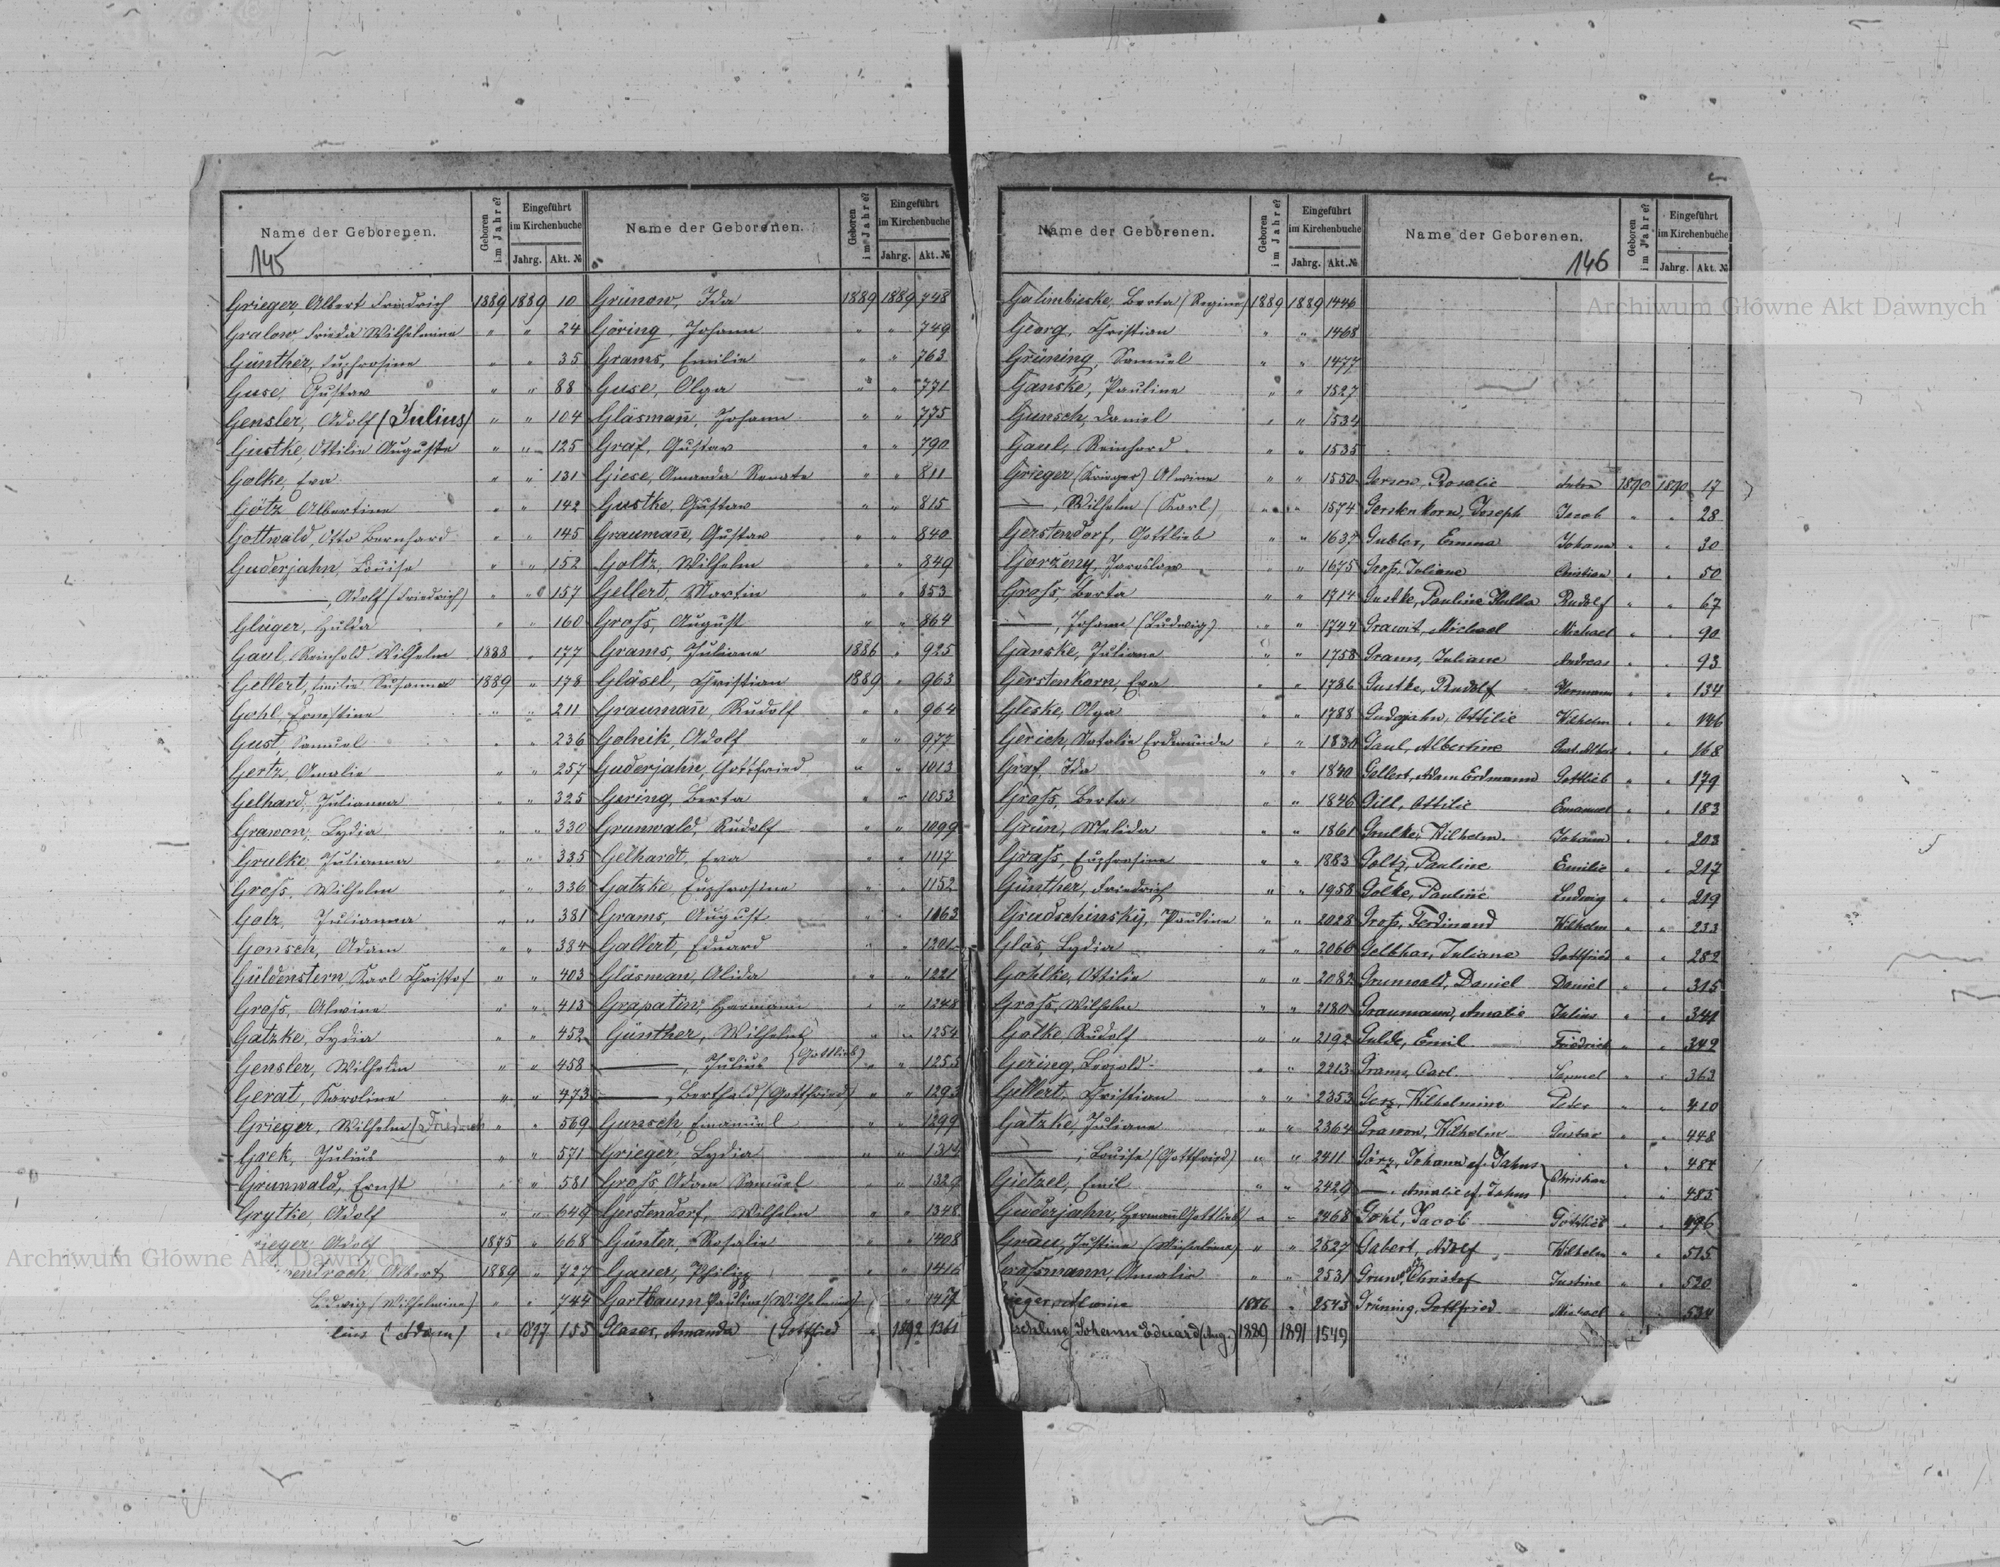 Name der Geborenen. Geboren im Jahre? Eingeführt im Kirchenbuche Jahrg. Akt. №
145
Grieger, Albert Friedrich 1889 1889 10
Gralow, Frieda Wilhelmine " " 24
Günther, Euphrosine " " 35
Guse, Gustav " " 88
Gensler, Adolf (Julius) " " 104
Gustke, Ottilie Auguste " " 125
Golke, Eva " " 131
Götz Albertine " " 142
Gottwald, Otto Bernhard " " 145
Guderjahn, Louise " " 152
—, Adolf (Friedrich) " " 157
Gluger, Hulda " " 160
Gaul, Reinhold Wilhelm 1888 " 177
Gellert, Emilie Susanna 1889 " 178
Gohl, Ernestine " " 211
Gust, Samuel " " 236
Gertz, Amalie " " 257
Gelhard, Julianna " " 325
Grawon, Lydia " " 330
Grulke, Julianna " " 335
Gross, Wilhelm " " 336
Golz, Julianna " " 381
Gonsch, Adam " " 384
Güldenstern, Karl Christof " " 403
Gross, Alwine " " 413
Gatzke, Lydia " " 452
Gensler, Wilhelm " " 458
Gerat, Karoline " " 473
Grieger, Wilhelm (Friedrich " " 569
Grek, Julius " " 571
Grunwald, Ernst " " 581
Grytke, Adolf " " 649
rieger Adolf 1875 " 668
Albert 1889 " 727
Ludwig (Wilhelmine) " " 744
(Adam) " 1897 155
Name der Geborenen. Geboren im Jahre? Eingeführt im Kirchenbuche Jahrg. Akt. №
Grünow, Ida 1889 1889 748
Göring, Johann " " 749
Grams, Emilie " " 763
Guse, Olga " " 771
Gläsmañ, Johann " " 775
Graf, Gustav " " 790
Giese, Amanda Renate " " 811
Gustke, Gustav " " 815
Graumañ, Gustav " " 840
Goltz, Wilhelm " " 849
Gellert, Martin " " 853
Gross, August " " 864
Grams, Juliane 1886 " 925
Gläsel, Christian 1889 " 963
Graumañ, Rudolf " " 964
Golnik, Adolf " " 977
Guderjahn, Gottfried " " 1013
Gering, Berta " " 1053
Grunwald, Rudolf " " 1099
Gelhardt, Eva " " 1117
Gatzke, Euphrosine " " 1152
Grams, August " " 1163
Gallert, Eduard " " 1201
Gläsman, Alida " " 1221
Grapatin, Hermann " " 1248
Günther, Wilhelm " " 1254
—, Julius (Gottlieb) " " 1255
—, Berthold (Gottfried) " " 1293
Gunsch, Emanuel " " 1299
Grieger Lydia " " 1314
Gross Adam Samuel " " 1329
Gerstendorf, Wilhelm " " 1348
Günter, Rosalie " " 1408
Gauer, Philipp " " 1416
Gartbaum Pauline (Wilhelmine) " " 1417
Glaser, Amanda (Gottfried " 1892 1361
Name der Geborenen. Geboren im Jahre? Eingeführt im Kirchenbuche Jahrg. Akt. №
Galimbieske, Berta (Regine) 1889 1889 1446
Georg, Christian " " 1468
Grüning, Samuel " " 1477
Ganske, Pauline " " 1527
Gunsch, Daniel " " 1534
Gaul, Reinhard " " 1535
Grieger (Krieger) Alwine " " 1550
—, Wilhelm (Karl) " " 1574
Gerstendorf, Gottlieb " " 1637
Gorzeny, Jaroslaw " " 1675
Gross, Berta " " 1714
—, Johann (Ludwig) " " 1744
Ganske, Juliane " " 1758
Gerstenkorn, Eva " " 1786
Gleske, Olga " " 1788
Gerich, Natalie Erdmunde " " 1830
Graf, Ida " " 1840
Gross, Berta " " 1846
Grün, Melida " " 1861
Grass, Euphrosine " " 1883
Günther, Friedrich " " 1958
Grudschinsky, Pauline " " 2028
Glos, Lydia " " 2060
Gohlke, Ottilie " " 2082
Gross, Wilhelm " " 2180
Golke Rudolf " " 2192
Gering, Leopold " " 2213
Gellert, Christian " " 2353
Gatzke, Juliane " " 2364
—, Louise (Gottfried) " " 2411
Gietzel, Emil " " 2429
Guderjahn, Hermañ Gottlieb " " 2468
Grau, Justine (Michaline) " " 2527
rossmann, Amalie " " 2531
ieger, Alwine 1886 " 2543
schling, Johann Eduard (Aug.) 1889 1891 1549
Name der Geborenen. Geboren im Jahre? Eingeführt im Kirchenbuche Jahrg. Akt. №
146
Gersow, Rosalie 1890 1890 17
Gerstenkorn, Joseph Jacob " " 28
Gubler, Emma Johann " " 30
Gross, Juliane Christian " " 50
Gustke, Pauline Hulda Rudolf " " 67
Grawit, Michael Michael " " 90
Grams, Juliane Andreas " " 93
Gustke, Rudolf Hermann " " 134
Guderjahn, Ottilie Wilhelm " " 146
Gaul, Albertine " " 168
Gellert, Adam Erdmann Gottlieb " " 179
Gill, Ottilie Emanuel " " 183
Grulke, Wilhelm Johann " " 203
Goltz, Pauline Emilie " " 217
Golke, Pauline Ludwig " " 219
Gross, Ferdinand Wilhelm " " 233
Gelbhar, Juliane Gottfried " " 282
Grunwald, Daniel Daniel " " 315
Graumann, Amalie Julius " " 341
Gulde, Emil Friedrich " " 349
Grams, Carl Samuel " " 363
Gerz, Wilhelmine Peter " " 410
Grawon, Wilhelm Gustav " " 448
Görz, Johann cf. Jahns Christian " " 484
—, Amalie cf. Jahns " " 485
Gohl, Jacob Gottlieb " " 496
Gabert, Adolf Wilhelm " " 515
Grund, Christof Justine " " 520
Grüning, Gottfried Michael " " 534
Archiwum Główne Akt Dawnych
Archiwum Główne Akt Dawnych